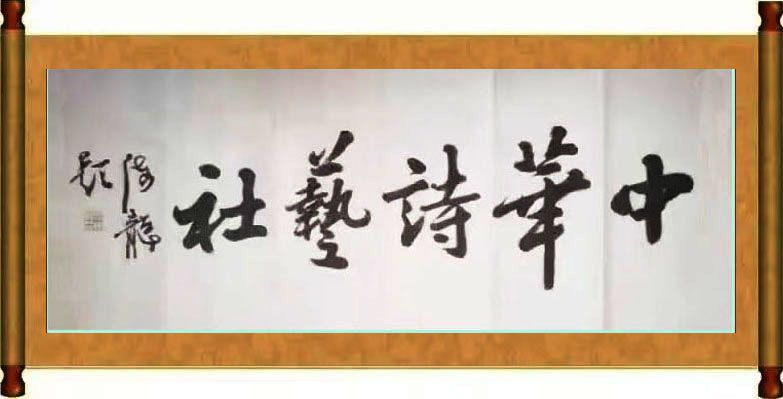 中華詩藝社